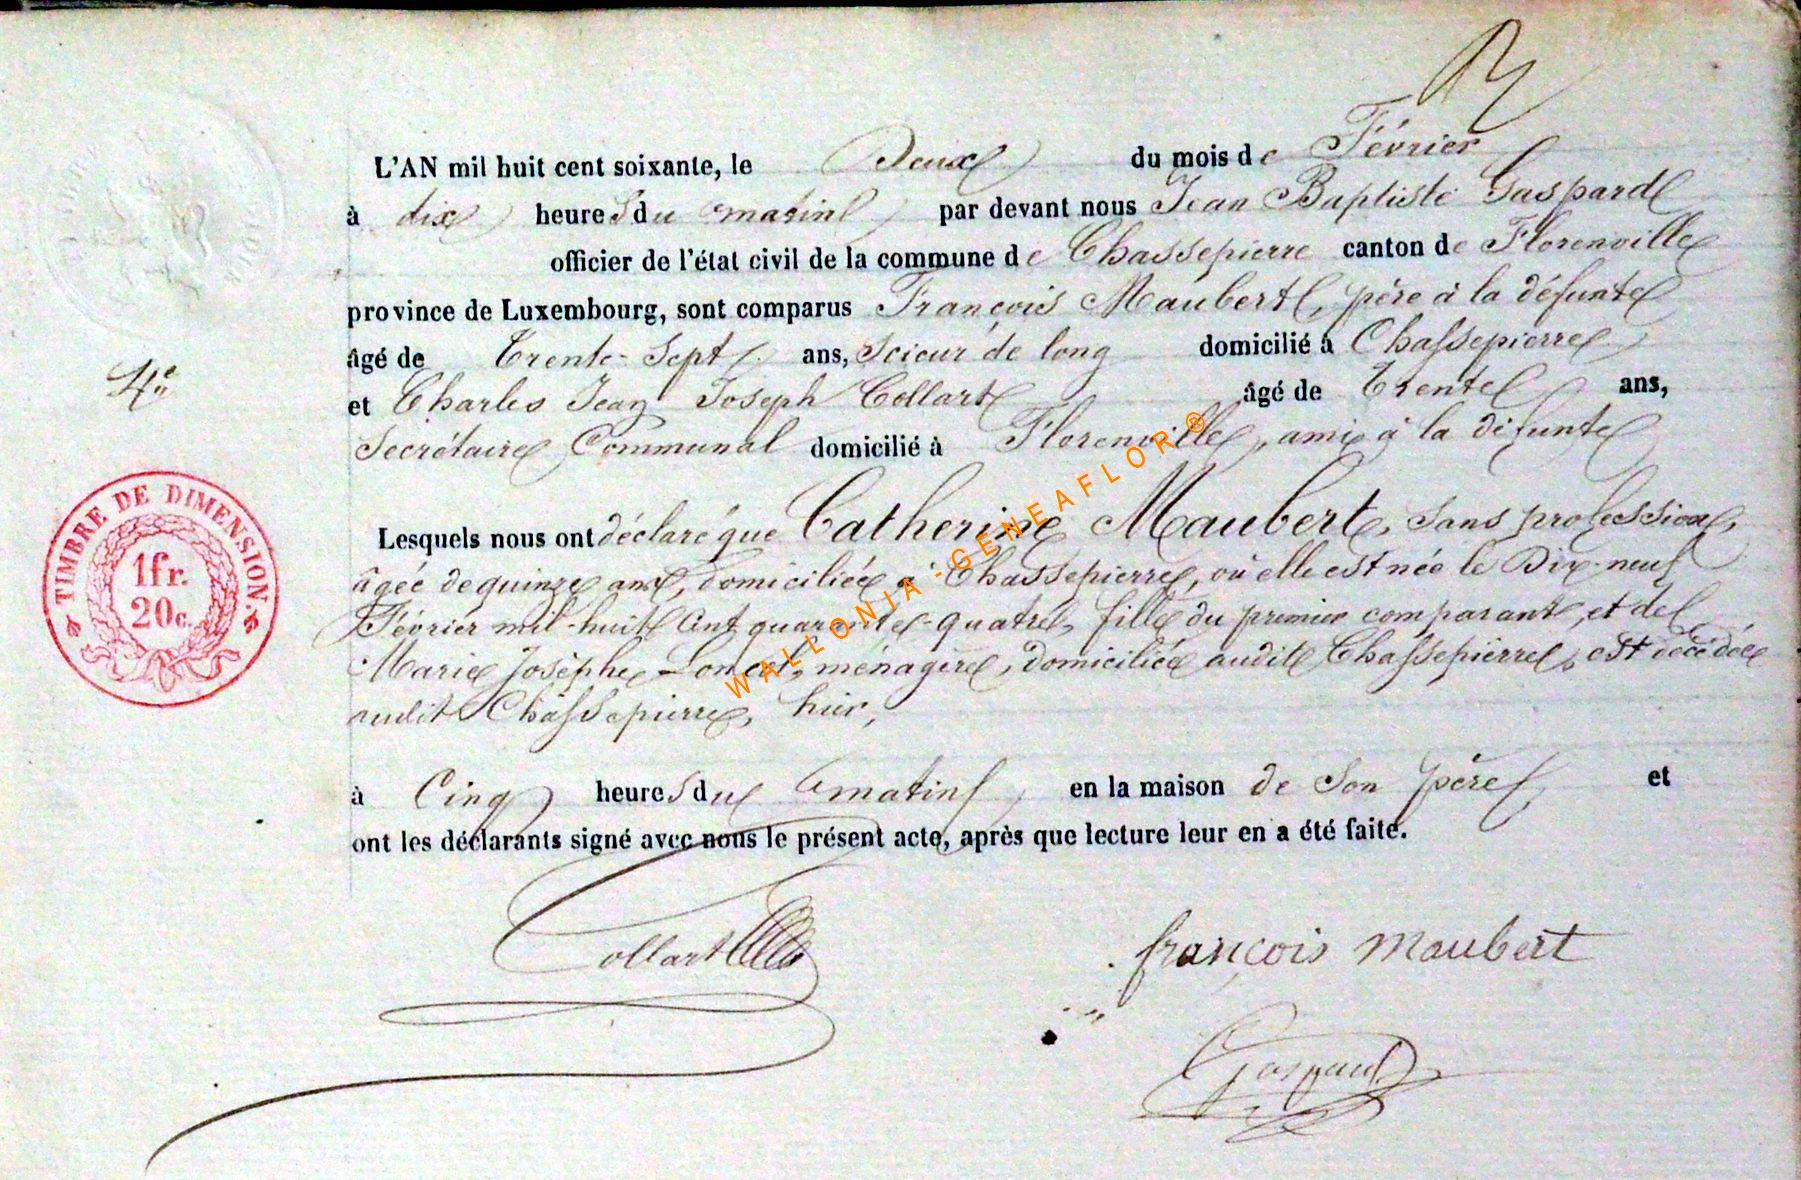 L'AN mil huit cent soixante, le Deux du mois de Février
à dix heures du matin par devant nous Jean Baptiste Gaspard
officier de l'état civil de la commune de Chassepierre canton de Florenville
province de Luxembourg, sont comparus François Maubert, père à la défunte
âgé de Trente-Sept ans, Scieur de long domicilié à Chassepierre
4e
et Charles Jean Joseph Collart âgé de Trente ans,
Secrétaire Communal domicilié à Florenville, ami à la défunte
Lesquels nous ont déclaré que Catherine Maubert, sans profession,
âgée de quinze ans, domiciliée à Chassepierre, où elle est née le Dix-neuf
Février mil-huit Cent quarante-quatre, fille du premier comparant, et de
Marie Josèphe ménagère, domiciliée audit Chassepierre, est décédée
audit Chassepierre, hier,
à Cinq heures du matin en la maison de Son père, et
ont les déclarants signé avec nous le présent acte, après que lecture leur en a été faite.
TIMBRE DE DIMENSION.
1fr.
20c.
WALLONIA-GENEAFLOR®
Collart
françois maubert
Gaspard